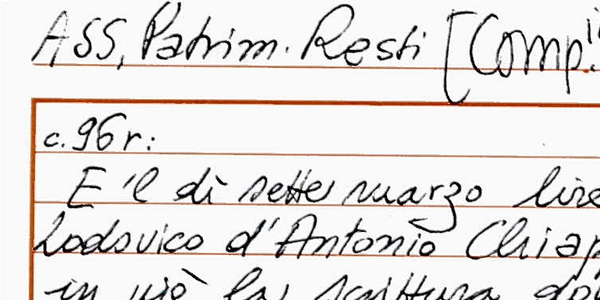 ASS, Patrim. Resti [Comp.
c. 96 r:
E 'l dì sette marzo lire
Lodovico d'Antonio Chiap
in ciò la scrittura do